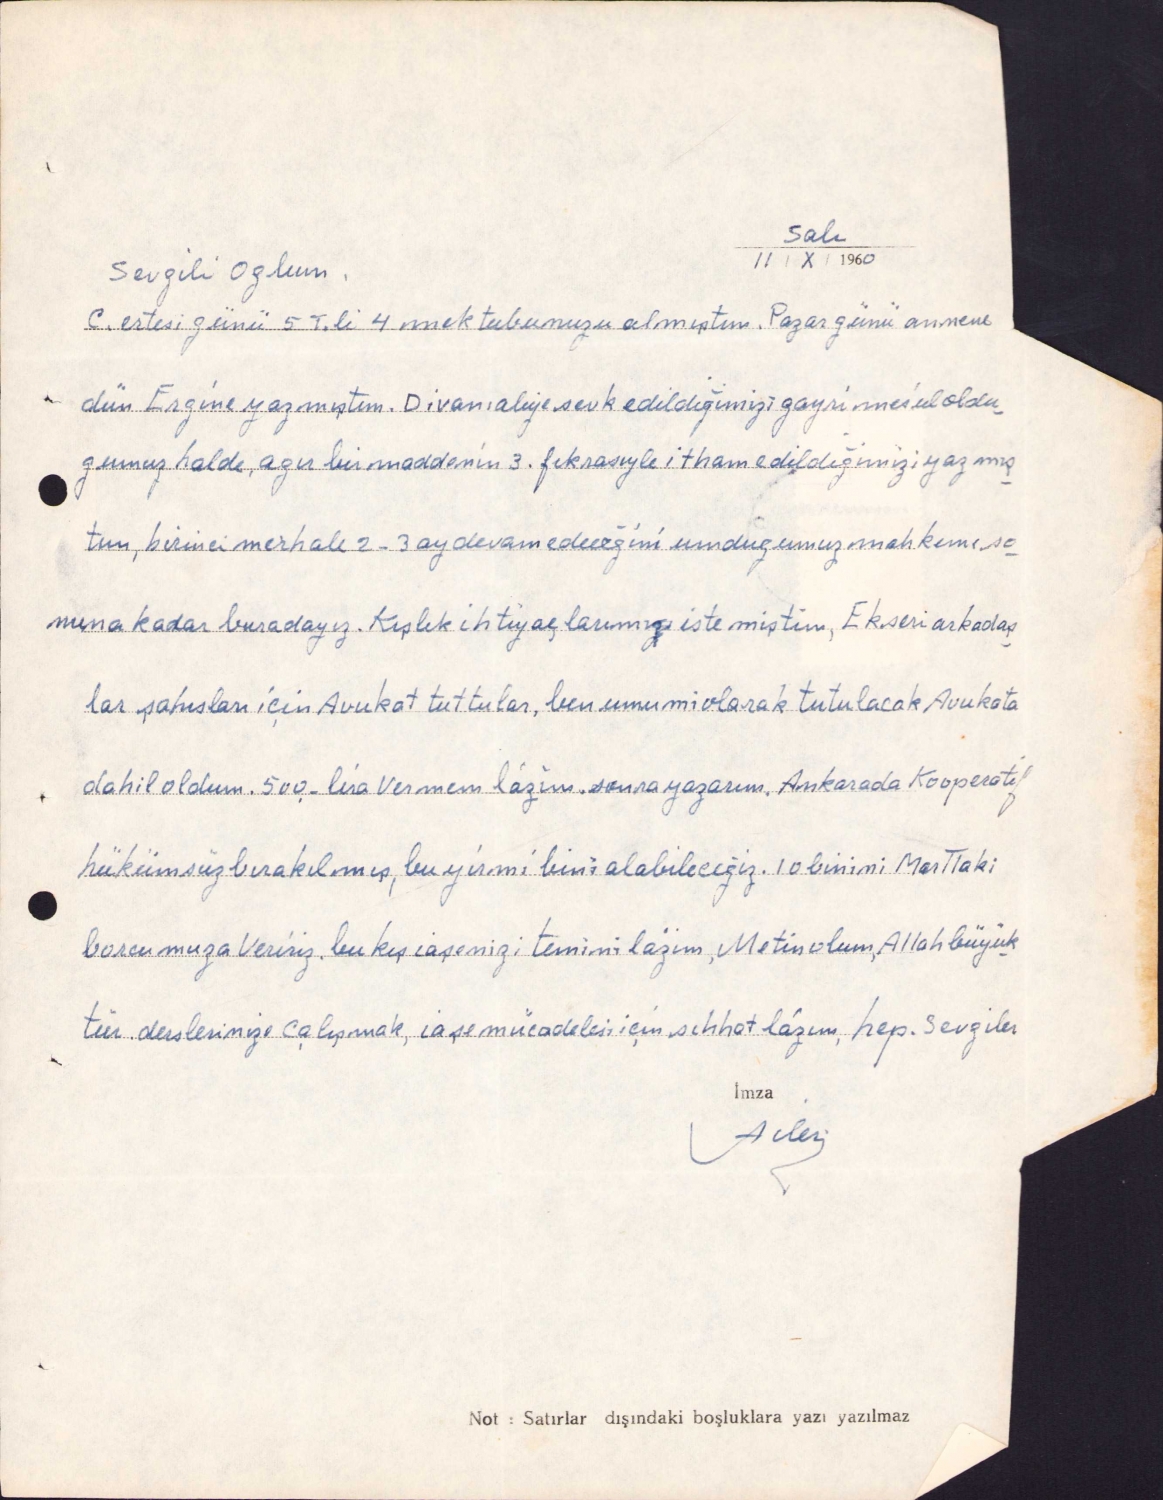 Salı
11 | X | 1960
Sevgili Oglum,
C. ertesi günü 5 T. li 4 mektubunuzu almıştım. Pazar günü annene
dün Ergine yazmıştım. Divanıaliye sevk edildiğimizi gayri mes'ul oldu_
gumuz halde, agır bir maddenin 3. fıkrasıyle itham edildiğimizi yazmış_
tım, birinci merhale 2-3 ay devam edeceğini umdugumuz mahkeme so_
nuna kadar buradayız. Kışlık ihtiyaçlarımızı istemiştim, Ekseri arkadaş_
lar şahısları için Avukat tuttular, ben umumi olarak tutulacak Avukata
dahil oldum. 500_ lira Vermem lâzım. sonra yazarım. Ankarada Kooperatif
hükümsüz bırakılmış, bu yirmi bini alabileceğiz. 10 binini Marttaki
borcumuza Veririz. bu kış iaşenizi temini lâzım, Metin olum, Allah büyük_
tür. derslerinize Çalışmak, iaşe mücadelesi için sıhhat lâzım, hep. Sevgiler
İmza
A ileri
Not : Satırlar dışındaki boşluklara yazı yazılmaz